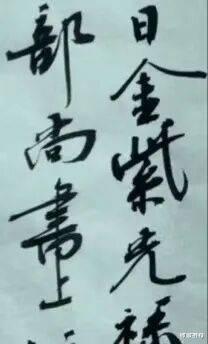 日金紫光禄
部尚書上